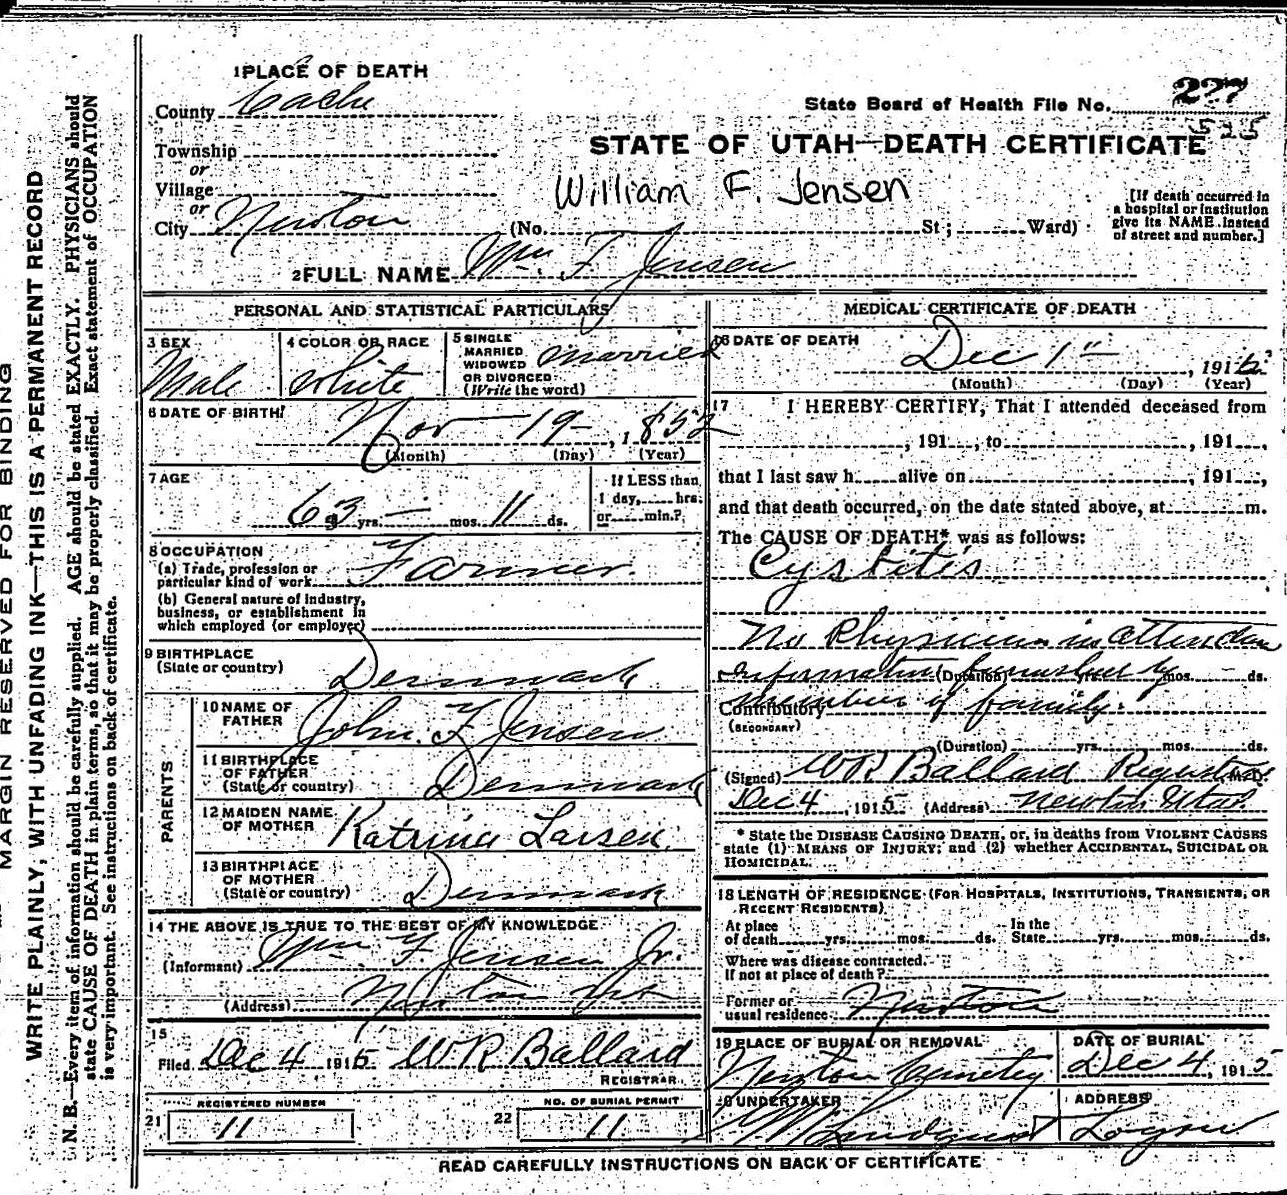 1 PLACE OF DEATH
County Cache
Township
or
Village
or
City Newton
State Board of Health File No. 227
525
STATE OF UTAH—DEATH CERTIFICATE
William F. Jensen
(No. St; Ward)
[If death occurred in
a hospital or institution
give its NAME instead
of street and number.]
2 FULL NAME Wm. F Jensen
PERSONAL AND STATISTICAL PARTICULARS
3 SEX
Male
4 COLOR OR RACE
White
5 SINGLE
MARRIED
WIDOWED
OR DIVORCED
(Write the word)
Married
6 DATE OF BIRTH
Nov 19 , 1852
(Month) (Day) (Year)
7 AGE
63 yrs. — mos. 11 ds.
If LESS than
1 day, hrs.
or min.?
8 OCCUPATION
(a) Trade, profession or
particular kind of work Farmer.
(b) General nature of industry,
business, or establishment in
which employed (or employer)
9 BIRTHPLACE
(State or country) Denmark
PARENTS
10 NAME OF
FATHER John. F Jensen
11 BIRTHPLACE
OF FATHER
(State or country) Denmark
12 MAIDEN NAME
OF MOTHER Katrina Larsen.
13 BIRTHPLACE
OF MOTHER
(State or country) Denmark
14 THE ABOVE IS TRUE TO THE BEST OF MY KNOWLEDGE
(Informant) Wm F Jensen Jr.
(Address) Newton
15
Filed Dec 4 1915 W R Ballard
REGISTRAR
21 REGISTERED NUMBER
11
22 NO. OF BURIAL PERMIT
11
MEDICAL CERTIFICATE OF DEATH
16 DATE OF DEATH
Dec 1 , 191
(Month) (Day) (Year)
17 I HEREBY CERTIFY, That I attended deceased from
, 191 , to , 191 ,
that I last saw h alive on , 191 ,
and that death occurred, on the date stated above, at m.
The CAUSE OF DEATH* was as follows:
Cystitis
No Physician in attendan
Information furnished by
(Duration) yrs. mos. ds.
member of family.
Contributory
(SECONDARY)
(Duration) yrs. mos. ds.
(Signed) W R Ballard Registrar M.D.
Dec 4 , 1915 (Address) Newton Utah.
* State the DISEASE CAUSING DEATH, or, in deaths from VIOLENT CAUSES
state (1) MEANS OF INJURY; and (2) whether ACCIDENTAL, SUICIDAL OR
HOMICIDAL.
18 LENGTH OF RESIDENCE (FOR HOSPITALS, INSTITUTIONS, TRANSIENTS, OR
RECENT RESIDENTS)
At place
of death yrs. mos. ds.
In the
State yrs. mos. ds.
Where was disease contracted.
If not at place of death?
Former or
usual residence Newton
19 PLACE OF BURIAL OR REMOVAL
Newton Cemetery
DATE OF BURIAL
Dec 4, 1915
20 UNDERTAKER
Lundquist
ADDRESS
Logan
READ CAREFULLY INSTRUCTIONS ON BACK OF CERTIFICATE
MARGIN RESERVED FOR BINDING
WRITE PLAINLY, WITH UNFADING INK—THIS IS A PERMANENT RECORD
N. B.—Every item of information should be carefully supplied. AGE should be stated EXACTLY. PHYSICIANS should
state CAUSE OF DEATH in plain terms, so that it may be properly classified. Exact statement of OCCUPATION
is very important. See instructions on back of certificate.